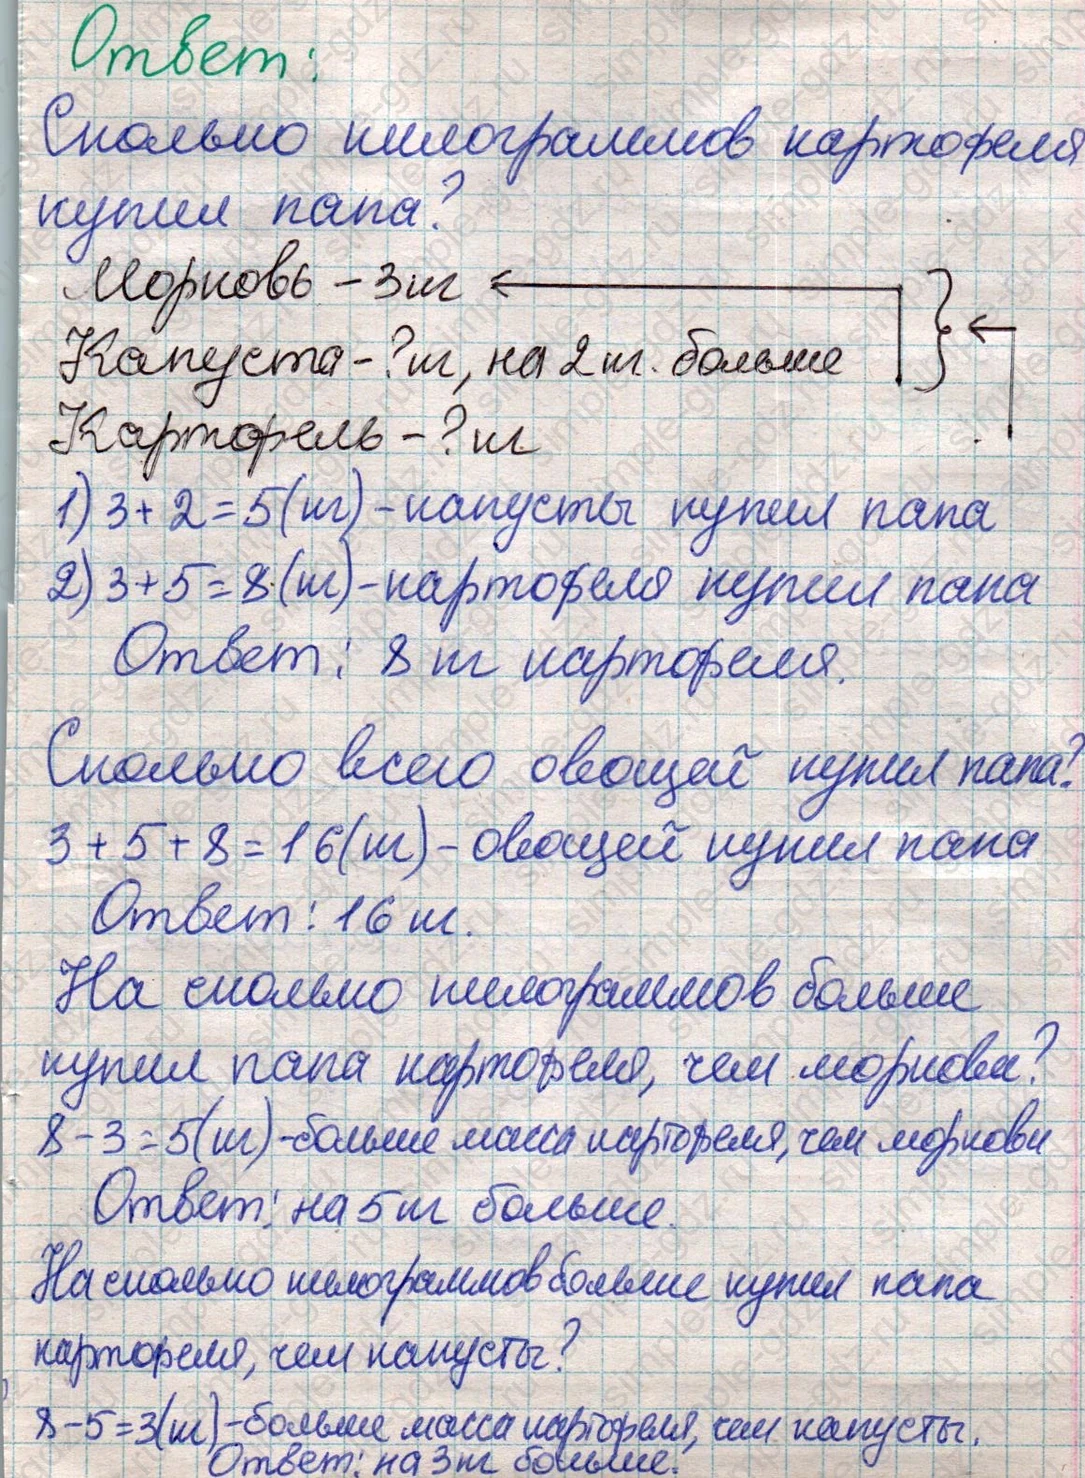 Ответ:
Сколько килограммов картофеля
купил папа?
Морковь – 3 кг
Капуста – ? кг, на 2 кг. больше
Картофель – ? кг
1) 3 + 2 = 5 (кг) – капусты купил папа
2) 3 + 5 = 8 (кг) – картофеля купил папа
Ответ: 8 кг картофеля.
Сколько всего овощей купил папа?
3 + 5 + 8 = 16 (кг) – овощей купил папа
Ответ: 16 кг.
На сколько килограммов больше
купил папа картофеля, чем моркови?
8 – 3 = 5 (кг) – больше масса картофеля, чем моркови
Ответ: на 5 кг больше.
На сколько килограммов больше купил папа
картофеля, чем капусты?
8 – 5 = 3 (кг) – больше масса картофеля, чем капусты.
Ответ: на 3 кг больше.